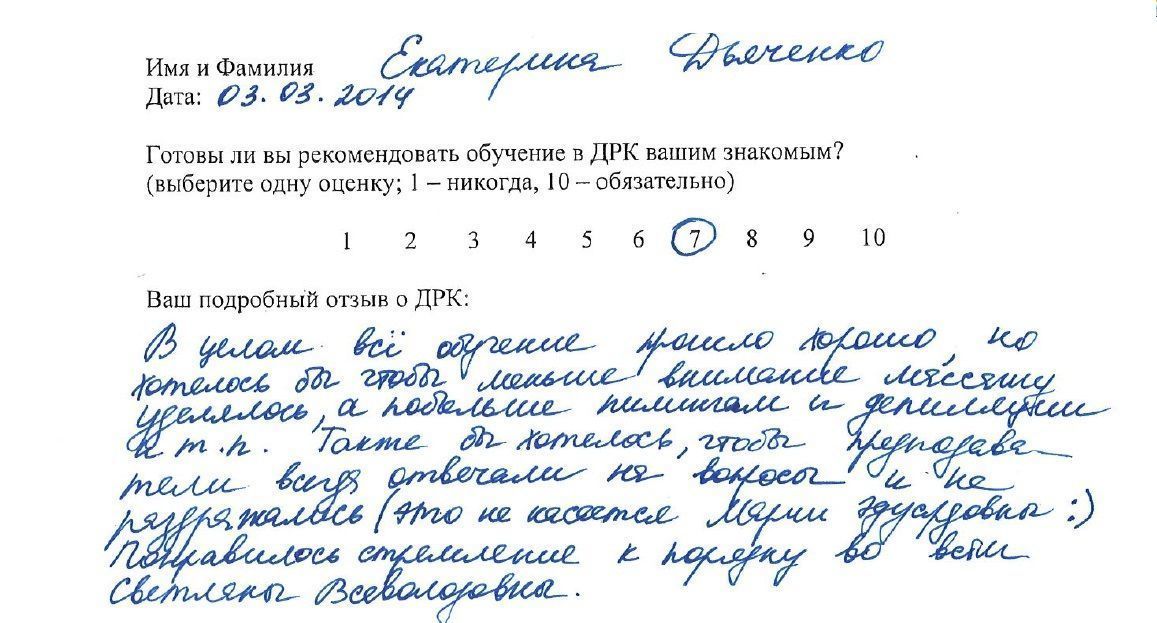 Имя и Фамилия Екатерина Дьяченко
Дата: 03.03.2014
Готовы ли вы рекомендовать обучение в ДРК вашим знакомым?
(выберите одну оценку; 1 – никогда, 10 – обязательно)
1 2 3 4 5 6 7 8 9 10
Ваш подробный отзыв о ДРК:
В целом всё обучение прошло хорошо, но
хотелось бы чтобы меньше внимание массажу
уделялось, а побольше пилингам и депиляции
и т.п. Также бы хотелось, чтобы преподава-
тели всегда отвечали на вопросы и не
раздражались (это не касается Марии Эдуардовны :)
Понравилось стремление к порядку во всём
Светланы Всеволодовны.